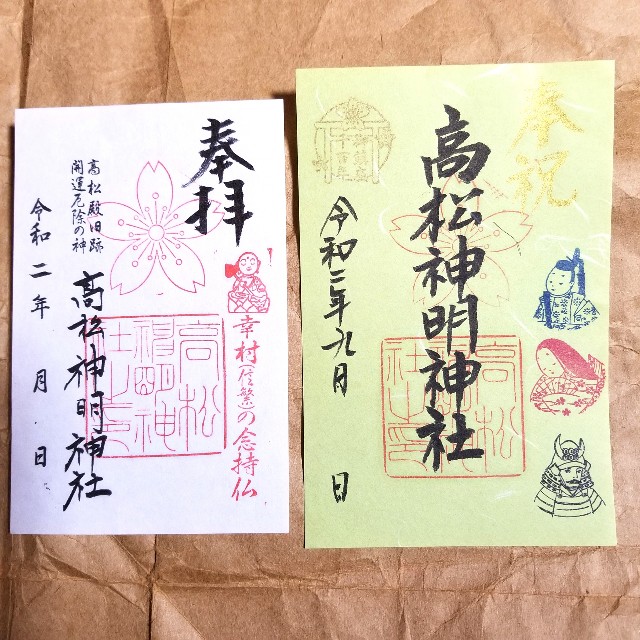 奉拝
高松殿旧跡
開運厄除の神
高松神明神社
令和二年 月 日
幸村(信繁)の念持仏
高松
神明神
社之印
奉祝
高松神明神社
令和二年九月 日
高松
神明神
社之印